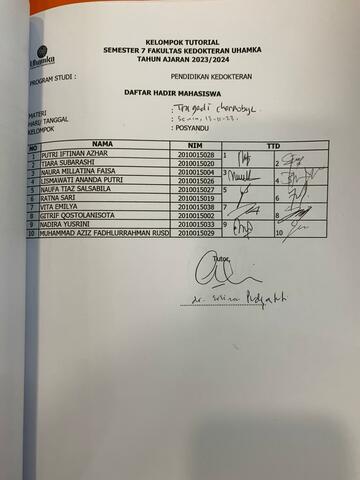 KELOMPOK TUTORIAL
SEMESTER 7 FAKULTAS KEDOKTERAN UHAMKA
TAHUN AJARAN 2023/2024
Uhamka
PROGRAM STUDI : PENDIDIKAN KEDOKTERAN
DAFTAR HADIR MAHASISWA
MATERI : Tragedi Chernobyl
HARI/TANGGAL : Senin, 13-11-23.
KELOMPOK : POSYANDU
NO NAMA NIM TTD
1 PUTRI IFTINAN AZHAR 2010015028 1
2 TIARA SUBARASHI 2010015020 2
3 NAURA MILLATINA FAISA 2010015004 3
4 LISMAWATI ANANDA PUTRI 2010015026 4
5 NAUFA TIAZ SALSABILA 2010015027 5
6 RATNA SARI 2010015019 6
7 VITA EMILYA 2010015038 7
8 GITRIF QOSTOLANISOTA 2010015002 8
9 NADIRA YUSRINI 2010015033 9
10 MUHAMMAD AZIZ FADHLURRAHMAN RUSD 2010015029 10
Tutor,
dr.